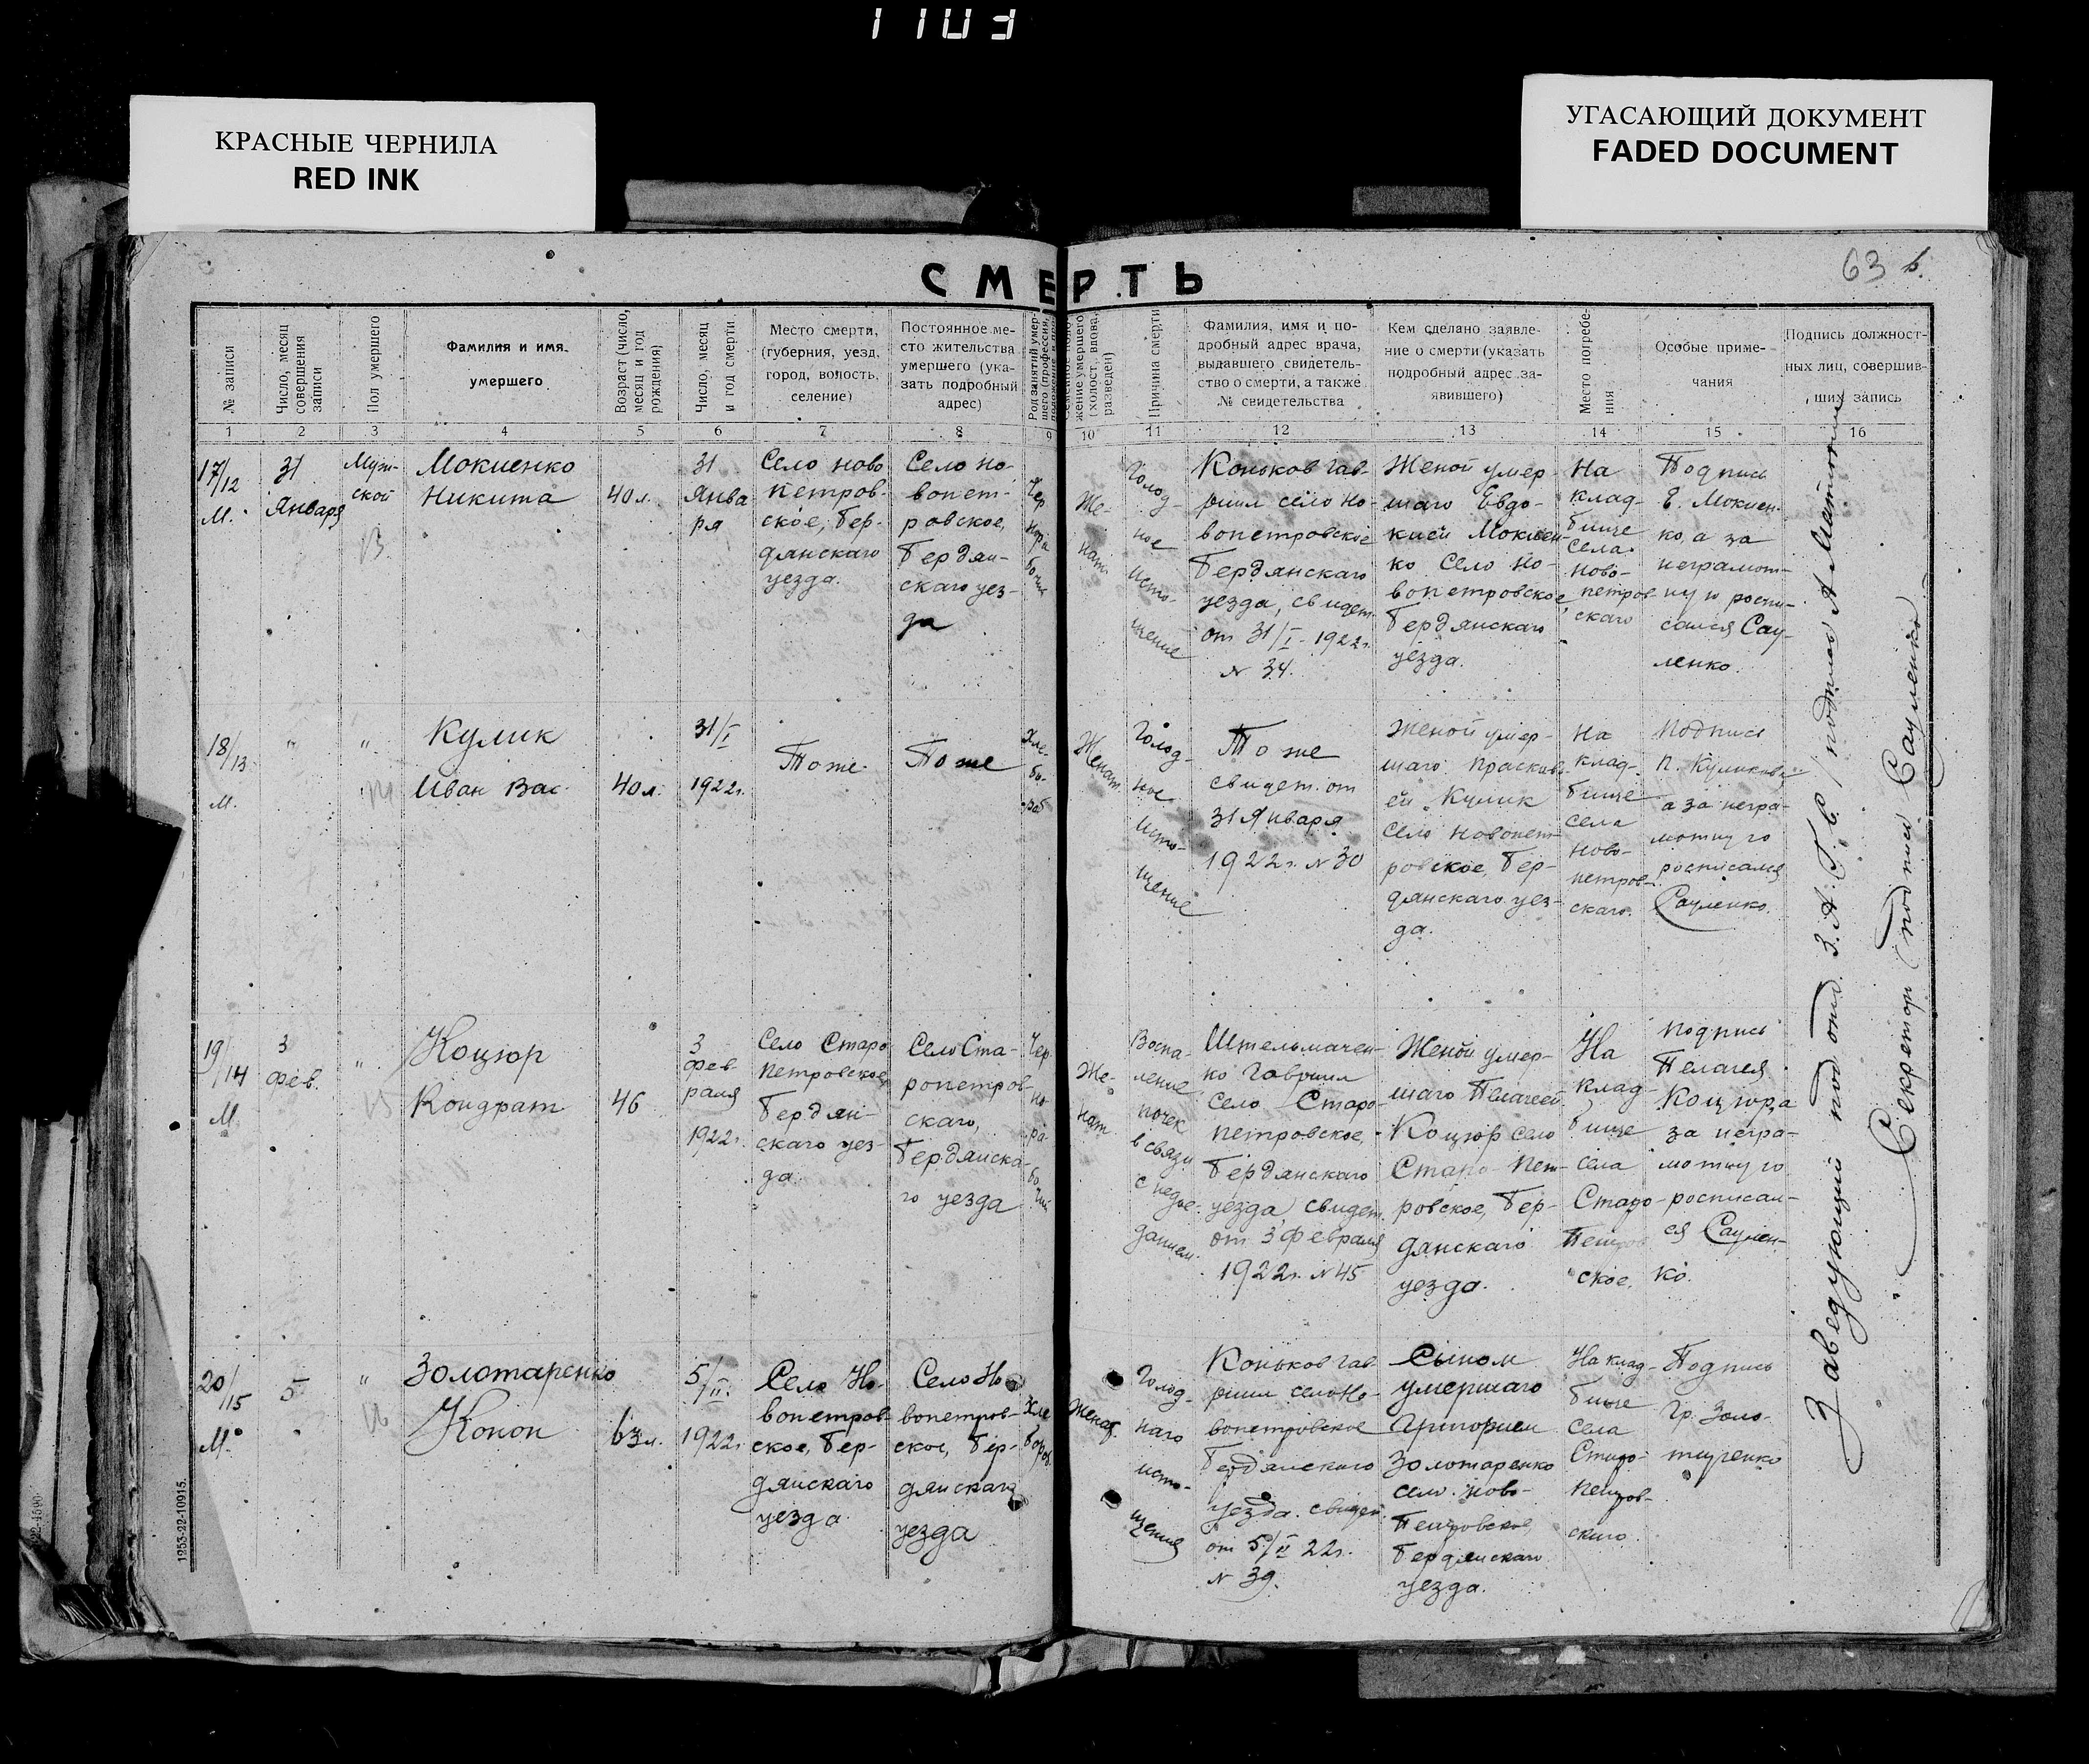 1103
КРАСНЫЕ ЧЕРНИЛА
RED INK
УГАСАЮЩИЙ ДОКУМЕНТ
FADED DOCUMENT
63
СМЕРТЬ
№ записи
Число, месяц
совершения
записи
Пол умершего
Фамилия и имя
умершего
Возраст (число,
месяц и год
рождения)
Число, месяц
и год смерти
Место смерти,
(губерния, уезд,
город, волость,
селение)
Постоянное ме-
сто жительства
умершего (ука-
зать подробный
адрес)
Род занятий умер-
шего (профессия,
жение умершего
(холост, вдова,
разведен)
Причина смерти
Фамилия, имя и по-
дробный адрес врача,
выдавшего свидетель-
ство о смерти, а также
№ свидетельства
Кем сделано заявле-
ние о смерти (указать
подробный адрес за-
явившего)
Место погребе-
ния
Особые приме-
чания
Подпись должност-
ных лиц, совершив-
ших запись
1 2 3 4 5 6 7 8 9 10 11 12 13 14 15 16
17/12
М.
31
Января
Муж-
ской
Мокиенко
Никита
40 л.
31
Янва
ря
Село Ново
петров-
ское, Бер-
дянскаго
уезда.
Село Но-
вопет-
ровское,
Бердян-
скаго уез-
да
Чер
нора
бочий
Же-
нат
Голод-
ное
исто-
щение
Коньков Гав-
риил село Но-
вопетровское
Бердянскаго
уезда, свидет.
от 31/I-1922г.
№ 34.
Женой умер-
шаго Евдо-
кией Мокиен-
ко село Но-
вопетровское
Бердянскаго
уезда.
На
клад-
бище
села
Ново-
петров-
скаго
Подпись
Е. Мокиен-
ко, а за
неграмот-
ную роспи-
сался Сау-
ленко.
18/13
М.
"
"
Кулик
Иван Вас.
40 л.
31/I
1922г.
Тоже
Тоже
Хле-
бо-
роб
Женат
Голод-
ное
исто-
щение
Тоже
свидет. от
31 Января
1922г. №30
Женой умер-
шаго Прасков-
ей Кулик
село Новопет-
ровское, Бер-
дянскаго уез-
да.
На
клад-
бище
села
Ново-
петров-
скаго.
Подпись
П. Куликовой
а за негра-
мотную
росписался
Сауленко.
19/14
М
3
фев.
"
Коцюр
Кондрат
46
3
фев-
раля
1922г.
Село Старо
Петровское,
Бердян-
скаго уез-
да
Село Ста-
ропетров-
скаго,
Бердянска-
го уезда
Чер
но-
ра-
бо
чий
Же-
нат
Воспа-
ление
почек
в связи
с недое-
данием
Штельмачен-
ко Гавриил
село Старо-
петровское,
Бердянскаго
уезда свидет.
от 3 февраля
1922г. №45
Женой умер-
шаго Пелагеей
Коцюр село
Старо-Пет-
ровское, Бер-
дянскаго
уезда.
На
клад-
бище
села
Старо-
Петров
ское.
Подпись
Пелагея
Коцюра
за негра-
мотную
росписал-
ся Саулен-
ко.
20/15
М.
5
"
Золотаренко
Конон
63 л.
5/II.
1922г.
Село Но-
вопетров-
ское, Бер-
дянскаго
уезда
Село Но
вопетров-
ское, Бер-
дянскаго
уезда
Хле
бороб.
Женат.
Голод-
наго
исто-
щения
Коньков Гав
риил село Но-
вопетровское
Бердянскаго
уезда. свидет.
от 5/II 22г.
№ 39.
Сыном
умершаго
Григорием
Золотаренко
село Ново-
Петровское,
Бердянскаго
уезда.
На клад-
бище
села
Старо-
Петров-
скаго.
Подпись
Гр. Золо-
таренко
Заведующий под отд. З.А.Г.С.
Секретар (подпись) Сауленко
1253-22-10915.